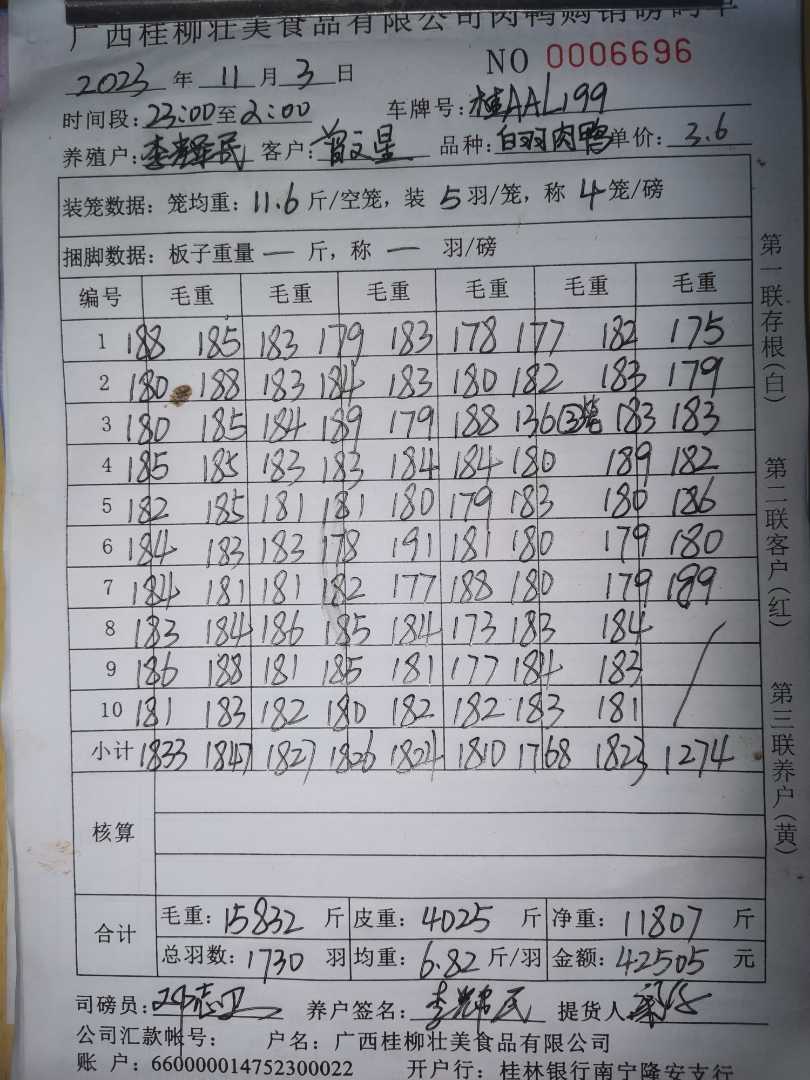 广西桂柳壮美食品有限公司肉鸭购销磅码单
NO 0006696
2023 年 11 月 3 日
时间段: 23:00 至 2:00 车牌号: 桂AAL199
养殖户: 李辉民 客户: 曾文星 品种: 白羽肉鸭 单价: 3.6
装笼数据: 笼均重: 11.6 斤/空笼, 装 5 羽/笼, 称 4 笼/磅
捆脚数据: 板子重量 一 斤, 称 一 羽/磅
编号 毛重 毛重 毛重 毛重 毛重 毛重
1 188 185 183 179 183 178 177 182 175
2 180 188 183 184 183 180 182 183 179
3 180 185 184 189 179 188 136 ③笼 183 183
4 185 185 183 183 184 184 180 189 182
5 182 185 181 181 180 179 183 180 186
6 184 183 183 178 191 181 180 179 180
7 184 181 181 182 177 188 180 179 189
8 183 184 186 185 184 173 183 184
9 186 188 181 185 181 177 184 183
10 181 183 182 180 182 182 183 181
小计 1833 1847 1827 1826 1824 1810 1768 1823 1274
核算
合计
毛重: 15832 斤 皮重: 4025 斤 净重: 11807 斤
总羽数: 1730 羽 均重: 6.82 斤/羽 金额: 42505 元
司磅员: 养户签名: 李辉民 提货人
公司汇款帐号: 户名: 广西桂柳壮美食品有限公司
账 户: 660000014752300022 开户行: 桂林银行南宁隆安支行
第一联存根(白)
第二联客户(红)
第三联养户(黄)